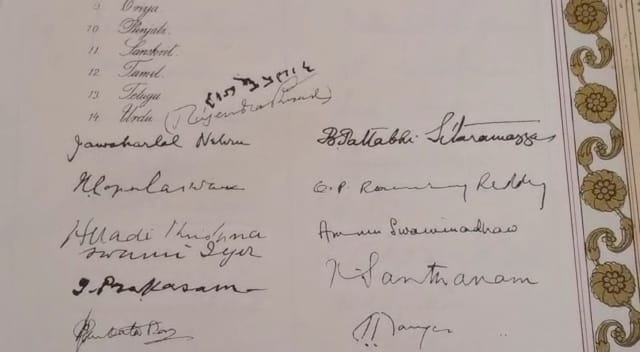 9 Oriya
10 Punjabi.
11 Sanskrit.
12 Tamil.
13 Telugu
14 Urdu
राजेन्द्र प्रसाद
(Rajendra Prasad)
Jawaharlal Nehru
B. Pattabhi Sitaramayya
N. Gopalaswami
O. P. Ramaswamy Reddy
Alladi Krishna
swami Iyer
Ammu Swaminadhan
T. Prakasam
K. Santhanam